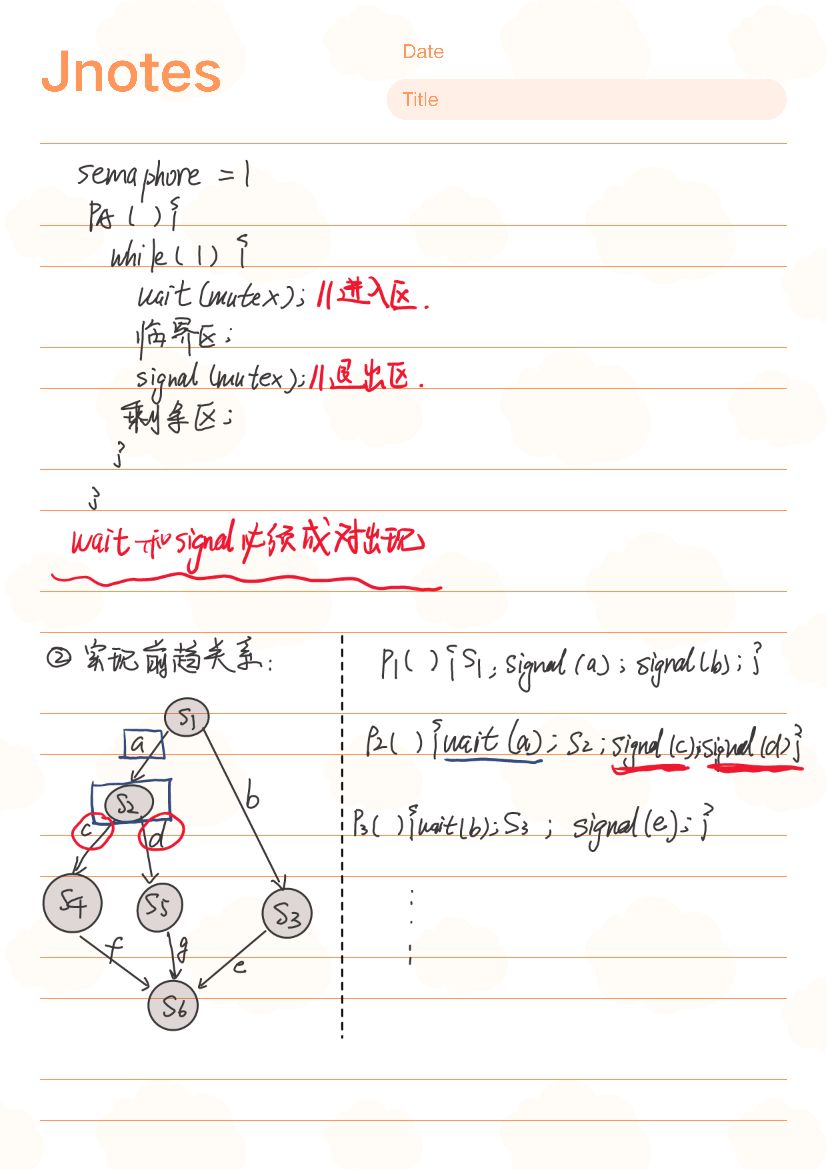 Jnotes
Date
Title
semaphore = 1
PA ( ) {
while ( 1 ) {
wait (mutex); //进入区.
临界区;
signal (mutex); //退出区.
剩余区;
}
}
wait和signal必须成对出现
② 实现前趋关系:
S1
a
S2
b
c
d
S4
S5
S3
f
g
e
S6
P1 ( ) { S1; signal (a) ; signal (b) ; }
P2 ( ) { wait (a) ; S2 ; signal (c); signal (d) }
P3 ( ) { wait (b); S3 ; signal (e) ; }